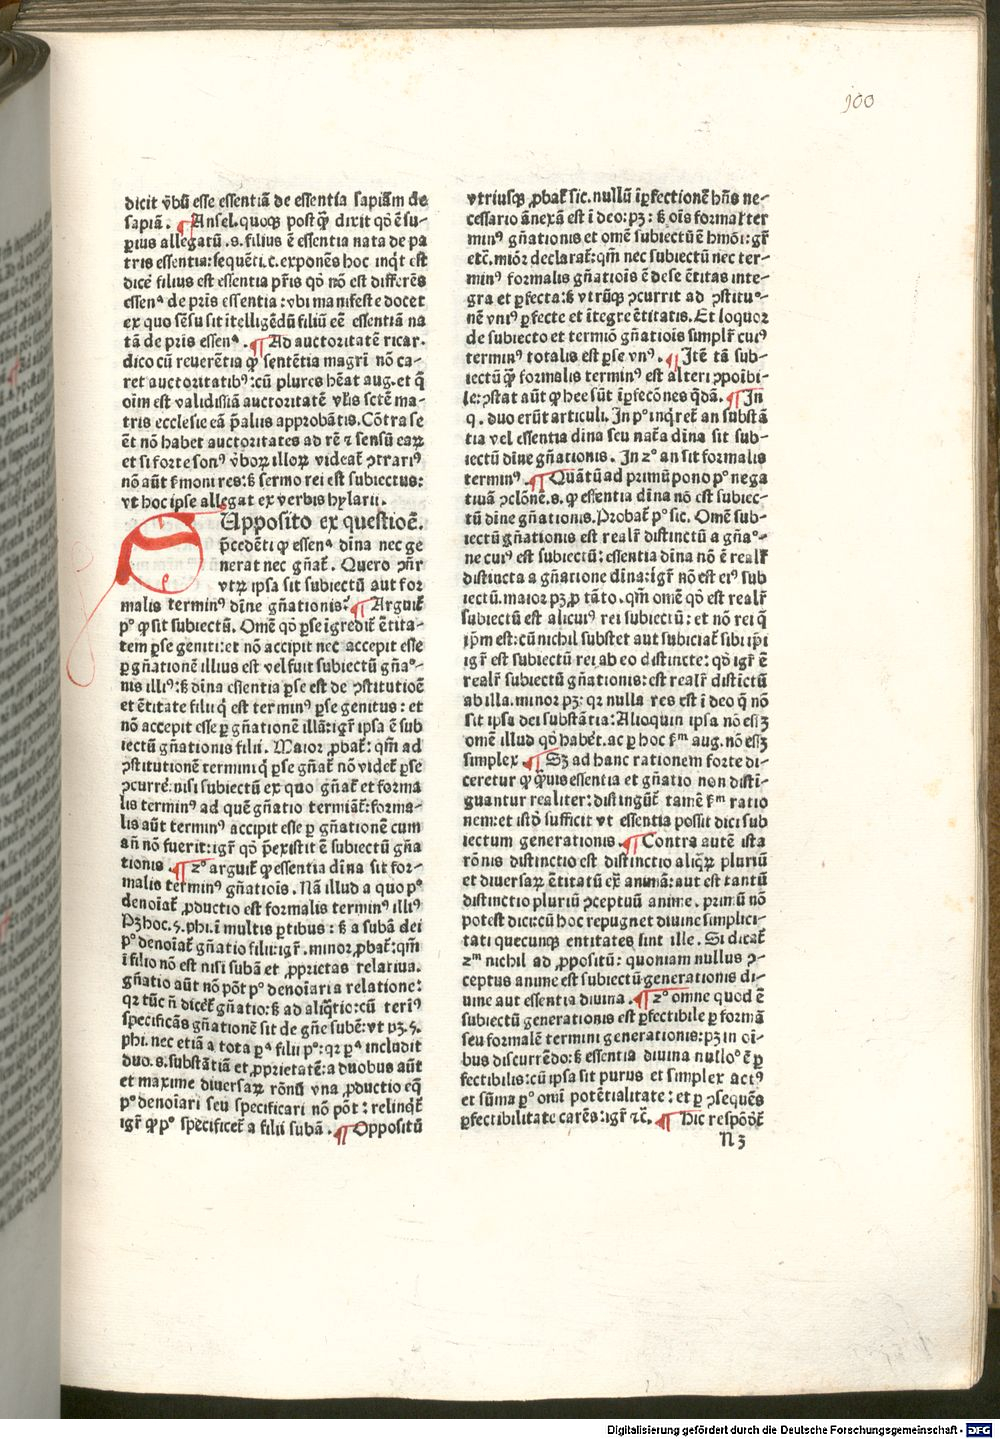 100
dicit v̄bū esse essentiā de essentia sapiām de
sapiā. ¶ Ansel. quoqꝫ post qꝫ dixit qō ē su-
perius allegatū .s. filius ē essentia nata de pa
tris essentia: sequēti .c. exponēs hoc inqͥt est
dicē filius est essentia pr̄is qō nō est differēs
essenᵃ de pr̄is essentia: vbi manifeste docet
ex quo sēsu sit ītelligēdū filiū eē essentiā na
tā de pris essenᵃ. ¶ Ad auctoritatē ricar.
dico cū reuerētia ꝙ sentētia magr̄i nō ca-
ret auctoritatibꝰ: cū plures hēat aug. et q̄
oīm est validissīa auctoritatē vl̄is sctē ma-
tris ecclesie eā p̄ aliis approbātis. Cōtra se
ēt nō habet auctoritates ad rē ⁊ sensū eaꝝ
et si forte sonꝰ v̄boꝝ illoꝝ videat̄ ꝯtrariꝰ
nō aūt ẜmoni res: ẜ sermo rei est subiectus:
vt hoc ipse allegat ex verbis hylarii.
SUpposito ex questioē.
p̄cedēti ꝙ essenᵃ dīna nec ge
nerat nec gn̄at̄. Quero ꝯn̄r
vtꝝ ipsa sit subiectū aut for
malis terminꝰ dīne gn̄ationis. ¶ Arguit̄
pᵒ ꝙ sit subiectū. Omē qō ꝑ se īgredit̄ ētita-
tem ꝑ se geniti: et nō accipit nec accepit esse
ꝑ gn̄ationē illius est vel fuit subiectū gn̄aᵒ-
nis illiꝰ: ẜ dīna essentia ꝑ se est de ꝯstitutioē
et ētitate filii q̄ est terminꝰ ꝑ se genitus: et
nō accepit esse ꝑ gn̄ationē illā: igr̄ ipsa ē sub
iectū gn̄ationis filii. Maior ꝓbat̄: qm̄ ad
ꝯstitutionē termini q̄ ꝑ se gn̄at̄ nō videt̄ ꝑ se
ꝯcurrē: nisi subiectū ex quo gn̄at̄ et forma
lis terminꝰ ad quē gn̄atio termiāt̄: forma-
lis aūt terminꝰ accipit esse ꝑ gn̄ationē cum
an̄ nō fuerit: igr̄ qō p̄existit ē subiectū gn̄a
tionis. ¶ 2ᵒ arguit̄ ꝙ essentia dīna sit for-
malis terminꝰ gn̄atiois. Nā illud a quo pᵒ
denoīat̄ ꝓductio est formalis terminꝰ illiꝰ
Pꝫ hoc .5. phi. ī multis ꝑtibus: ẜ a subā dei
pᵒ denoīat̄ gn̄atio filii: igr̄. minor ꝓbat̄: qm̄
ī filio nō est nisi subā et ꝓprietas relatiua.
gn̄atio aūt nō pōt pᵒ denoīari a relatione:
qꝛ tūc n̄ dicet̄ gn̄atio: ẜ ad aliqͥtio: cū teriꝰ
specificās gn̄ationē sit de gn̄e subē: vt pꝫ .5.
phi. nec etiā a tota pᵃ filii pᵒ: qꝛ pᵃ includit
duo .s. substātiā et ꝓprietatē: a duobus aūt
et maxime diuersaꝝ rōnū vna ꝓductio eq̄
pᵒ denoīari seu specificari nō pōt: relinqͥt̄
igr̄ ꝙ pᵒ specificet̄ a filii subā. ¶ Oppositū
vtriusqꝫ ꝓbat̄ sic. nullū īꝑfectionē hn̄s ne-
cessario ānexā est ī deo: pꝫ: ẜ oīs formal̄ ter
minꝰ gn̄ationis et omē subiectū ē hmōi: gr̄
etc̄. miōr declarat̄: qm̄ nec subiectū nec ter-
minꝰ formalis gn̄atiois ē de se ētitas inte-
gra et ꝑfecta: ẜ vtrūqꝫ ꝯcurrit ad ꝯstituᵒ-
nē vniꝰ ꝑfecte et ītegre ētitatis. Et loquor
de subiecto et termiō gn̄atiois simplr̄ cuiꝰ
terminꝰ totalis est ꝑ se vnꝰ. ¶ Itē tā sub-
iectū qꝫ formalis terminꝰ est alteri ꝯpoībi-
le: ꝯstat aūt ꝙ hee sūt īꝑfecōnes q̄dā. ¶ In
q. duo erūt articuli. In pᵒ inqͥret̄ an substā
tia vel essentia dīna seu nat̄a dīna sit sub-
iectū dīne gn̄ationis. In 2ᵒ an sit formalis
terminꝰ. ¶ Quātū ad primū pono pᵒ nega
tiuā ꝯclōnē .s. ꝙ essentia dīna nō est subiec-
tū dīne gn̄ationis. Probat̄ pᵒ sic. Omē sub-
iectū gn̄ationis est realr̄ distinctū a gn̄aᵒ-
ne cuiꝰ est subiectū: essentia dīna nō ē realr̄
distincta a gn̄atione dīna: igr̄ nō est eiꝰ sub
iectū. maior pꝫ ꝓ tāto. qm̄ omē qō est realr̄
subiectū est alicuiꝰ rei subiectū: et nō rei q̄
ip̄m est: cū nichil substet aut subiciat̄ sibi ip̄i
igr̄ est subiectū rei ab eo distincte: qō igr̄ ē
realr̄ subiectū gn̄ationis: est realr̄ distīctū
ab illa. minor pꝫ: qꝛ nulla res est ī deo q̄ nō
sit ipsa dei substātia: Alioquin ipsa nō eēꝫ
omē illud qō habēt. ac ꝑ hoc ẜᵐ aug. nō eēꝫ
simplex. ¶ Sꝫ ad hanc rationem forte di-
ceretur ꝙ q̄uis essentia et gn̄atio non disti-
guantur realiter: distīgūt̄ tamē ẜᵐ ratio
nem: et istō sufficit vt essentia possit dici sub
iectum generationis. ¶ Contra autē ista
rōnis distinctio est distinctio aliqͣꝝ pluriū
et diuersaꝝ ētitatū ex̄ animā: aut est tantū
distinctio pluriū ꝯceptuū anime. primū nō
potest dici: cū hoc repugnet diuine simplici-
tati quecunqꝫ entitates sint ille. Si dicat̄
2ᵐ nichil ad ꝓpositū: quoniam nullus ꝯ-
ceptus anime est subiectū generationis di-
uine aut essentia diuina. ¶ 2ᵒ omne quod ē
subiectū generationis est ꝑfectibile ꝑ formā
seu formalē termini generationis: pꝫ in oī-
bus discurrēdo: ẜ essentia diuina nulloᵒ ē ꝑ
fectibilis: cū ipsa sit purus et simplex actꝰ
et sūma ꝑᵒ omī potētialitate: et ꝑ ꝯsequēs
ꝑfectibilitate carēs: igr̄ ⁊c̄. ¶ Hic respōdēt̄
N 3
Digitalisierung gefördert durch die Deutsche Forschungsgemeinschaft - DFG